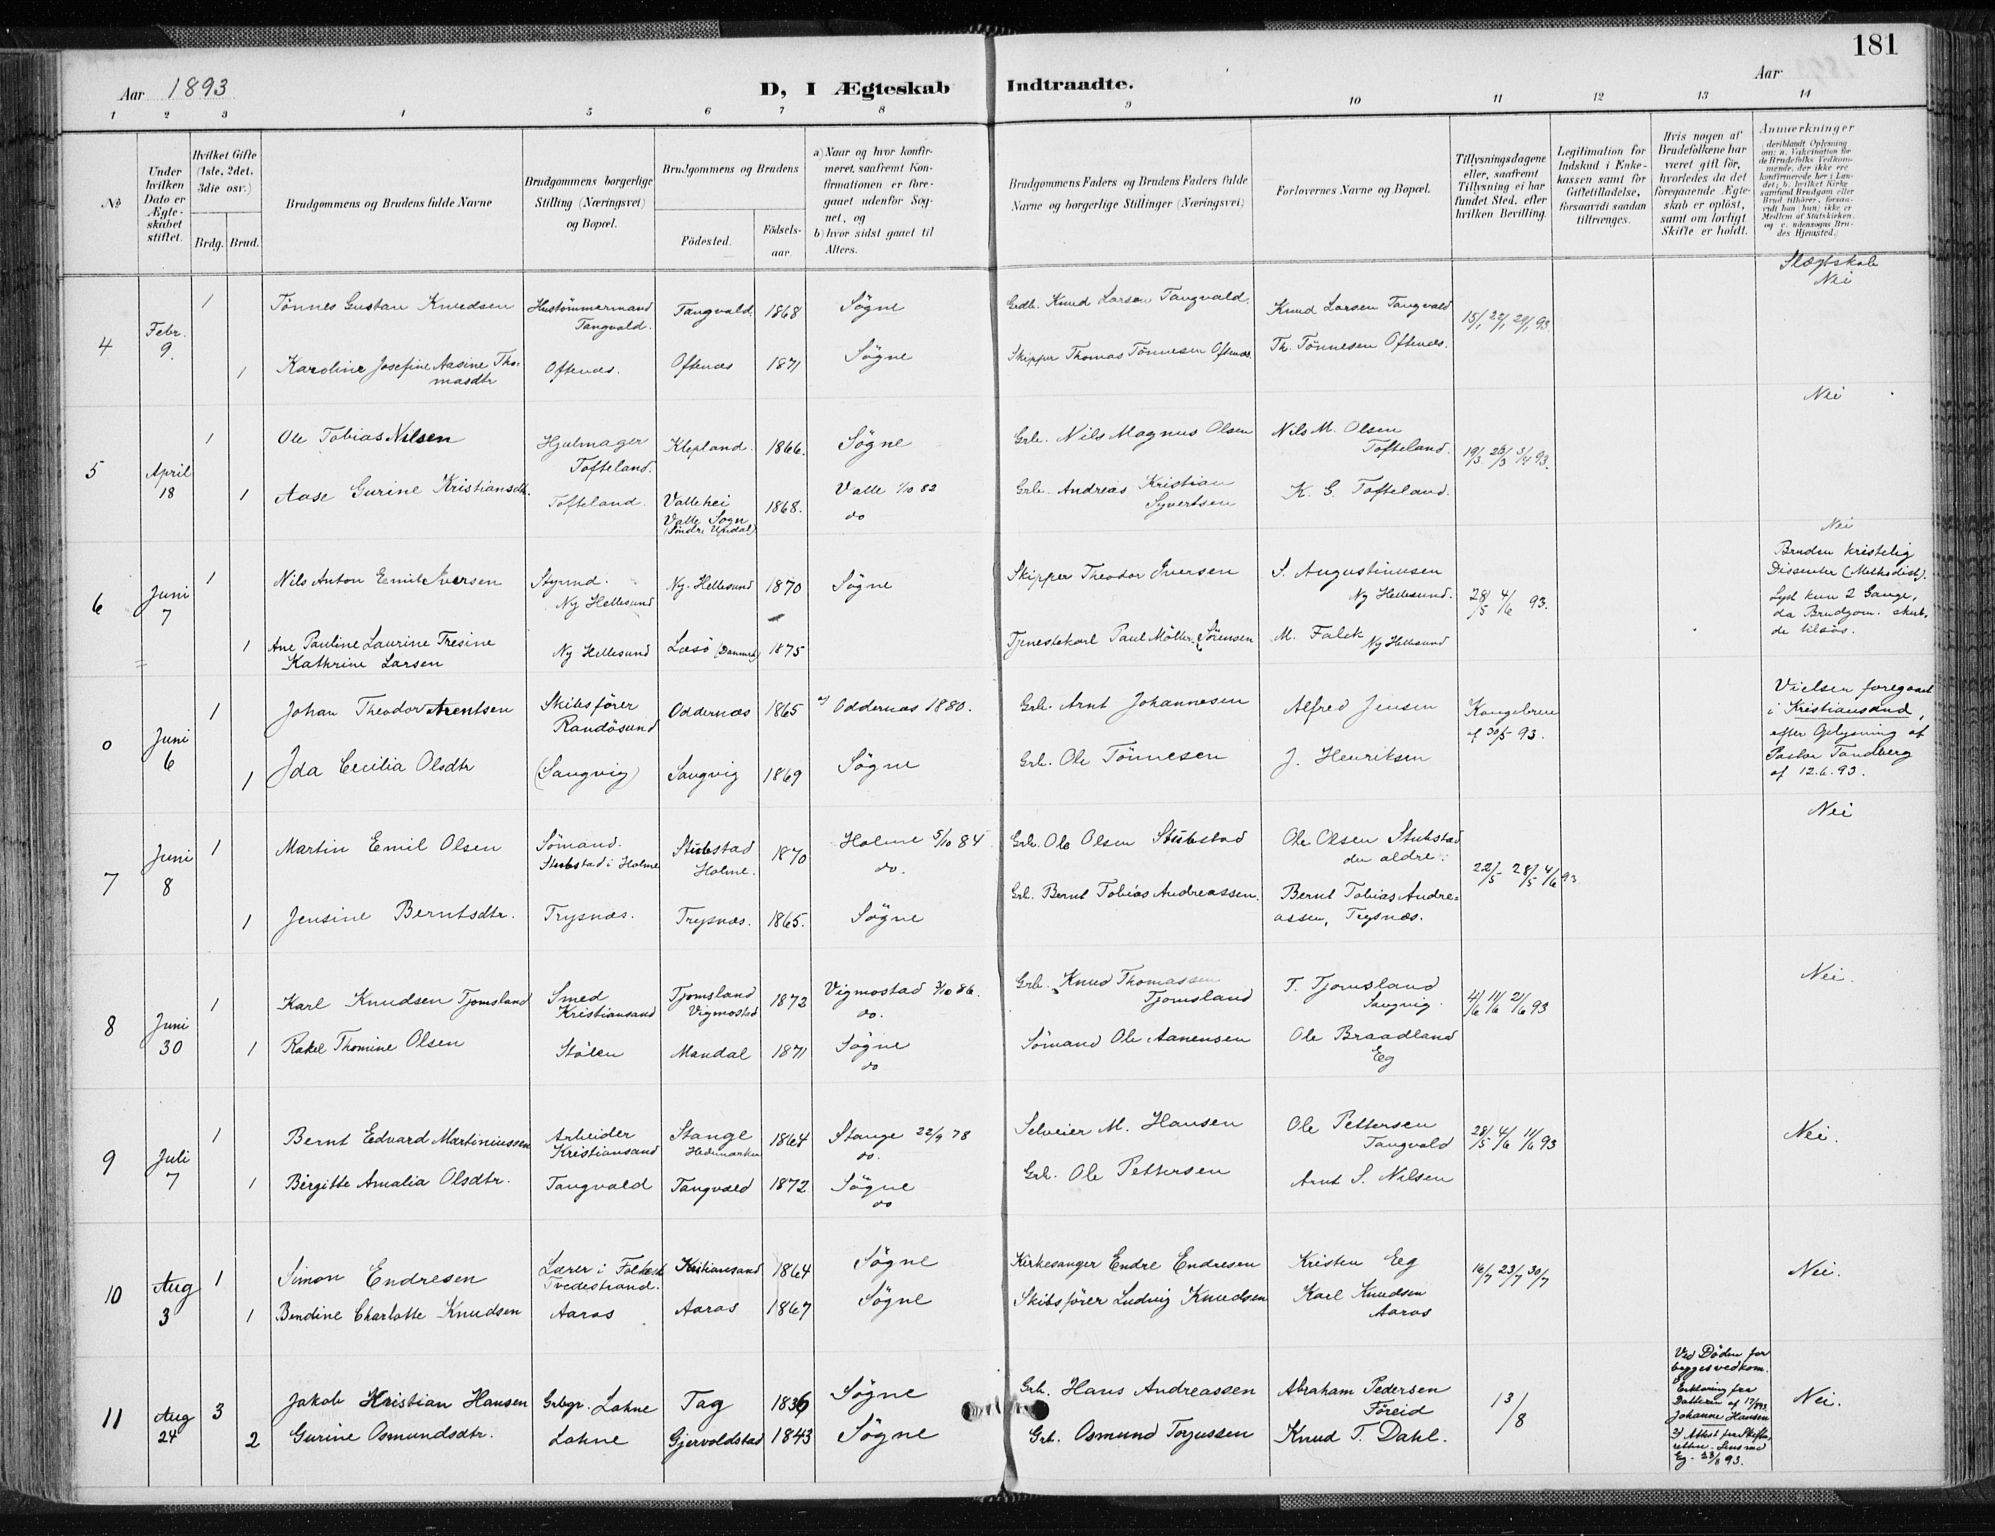 181
Aar 1893
D, I Ægteskab Indtraadte.
Aar
1 2 3 4 5 6 7 8 9 10 11 12 13 14
No
Under hvilken Dato er Ægteskabet stiftet.
Hvilket Gifte (1ste, 2det, 3die osv.)
Brdg. Brud.
Brudgommens og Brudens fulde Navne
Brudgommens borgerlige Stilling (Næringsvei) og Bopæl.
Brudgommens og Brudens
Födested.
Födselsaar.
a) Naar og hvor konfirmeret, saafremt Konfirmationen er foregaaet udenför Sognet, og
b) hvor sidst gaaet til Alters.
Brudgommens Faders og Brudens Faders fulde Navne og borgerlige Stillinger (Næringsvei)
Forlovernes Navne og Bopæl.
Tillysningsdagene eller, saafremt Tillysning ei har fundet Sted, efter hvilken Bevilling.
Legitimation for Indskud i Enkekassen samt for Giftetilladelse, forsaavidt saadan tiltrænges.
Hvis nogen af Brudefolkene har været gift för, hvorledes da det foregaaende Ægteskab er oplöst, samt om lovligt Skifte er holdt.
Anmærkninger
(deriblandt Oplysning om: a. Vakcination for de Brudefolks Vedkommende, der ikke ere konfirmerede her i Landet; b. hvilket Kirkesamfund Brudgom eller Brud tilhörer, forsaavidt han (hun) ikke er Medlem af Statskirken, og c. udensogns Brudes Hjemsted.)
Slægtskab
4 Febr. 9. 1 Tönnes Gustav Knudsen Hustömmermand Tangvald. Tangvald. 1868 Søgne Grdb. Knud Larsen Tangvald. Knud Larsen Tangvald 15/1 22/1 29/1 93. Nei
1 Karoline Josefine Aasine Thomasdtr Oftenæs. Oftenæs 1871 Søgne Skipper Thomas Tönnesen Oftenæs. Th. Tönnesen Oftenæs.
5 April 18 1 Ole Tobias Nilsen Hjulmager Tofteland. Klepland. 1866. Søgne Grb. Nils Magnus Olsen Nils M. Olsen Tofteland. 19/3 26/3 3/4 93. Nei
1 Aase Gurine Kristiansdtr. Tofteland. Vallehei Valle Sogn (Söndre Undal) 1868. Valle 1/10 82 do Grb. Andreas Kristian Syvertsen K. G. Tofteland.
6 Juni 7 1 Nils Anton Emil Iversen Styrmd. Ny Hellesund Ny-Hellesund 1870 Søgne Skipper Theodor Iversen S. Augustinusen Ny Hellesund. 28/5 4/6 93. Nei
Bruden kristelig Dissenter (Methodist). Lyd kun 2 Gange, da Brudgom. skulde tilsøs.
1 Ane Pauline Laurine Tresine Kathrine Larsen Ny Hellesund Læsö (Danmark) 1875 Tjenestekarl Paul Möller Sörensen M. Falck Ny Hellesund
0 Juni 6 1 Johan Theodor Arentsen Skibsfører Randösund Oddernæs 1865 a) Oddernæs 1880. Grb. Arnt Johannesen Alfred Jensen Kongebrev af 30/5 93.
Vielsen foregaaet i Kristiansand, efter Oplysning af Pastor Tandberg af 12.6.93.
1 Ida Cecilia Olsdtr (Langvig) Langvig 1869 Søgne Grb. Ole Tönnesen J. Henriksen
7 Juni 8 1 Martin Emil Olsen Sömand. Stubstad i Holme Stubstad Holme. 1870 Holme 5/10 84 do. Grb. Ole Olsen Stubstad Ole Olsen Stubstad den ældre. 22/5 28/5 4/6 93 Nei
1 Jensine Berntsdtr. Trysnæs. Trysnæs. 1865. Søgne Grb. Bernt Tobias Andreassen. Bernt Tobias Andreassen, Trysnæs.
8 Juni 30 1 Karl Knudsen Tjomsland Smed Kristiansand Tjomsland Vigmostad 1872 Vigmostad 3/10 86. do. Grb. Knud Thomassen Tjomsland T. Tjomsland Langvig. 4/6 11/6 21/6 93 Nei.
1 Rakel Thomine Olsen Stölen Mandal 1871 Søgne do Sömand Ole Aanensen Ole Braadland Eg
9 Juli 7 1 Bernt Edvard Martiniussen Arbeider Kristiansand Stange Hedemarken 1864 Stange 22/9 78 do. Selveier M. Hansen Ole Pettersen Tangvald 28/5 4/6 11/6 93 Nei.
1 Birgitte Amalia Olsdtr. Tangvald Tangvald 1872 Søgne do Grb. Ole Pettersen Arnt S. Nilsen
10 Aug 3 1 Simon Endresen Lærer i Tvedestrand. Kristiansand 1864 Søgne Kirkesanger Endre Endresen Kristen Eg 16/7 23/7 30/7 Nei.
1 Bendine Charlotte Knudsen Aaros Aaros 1867 Søgne Skibsfører Ludvig Knudsen Karl Knudsen Aaros
11 Aug 24 3 Jakob Kristian Hansen Grbgr. Lohne Tag 1836 Søgne Grb. Hans Andreassen Abraham Pedersen Föreid 13/8 Nei.
Ved Döden for begges vedkom. Erklæring fra Datteren af Johanne Hansen Attest fra Skifteretten Eg. 23/8 93.
2 Gurine Osmundsdtr. Lohne Gjervoldstad 1843 Søgne Grb. Osmund Torjussen Knud T. Dahl.